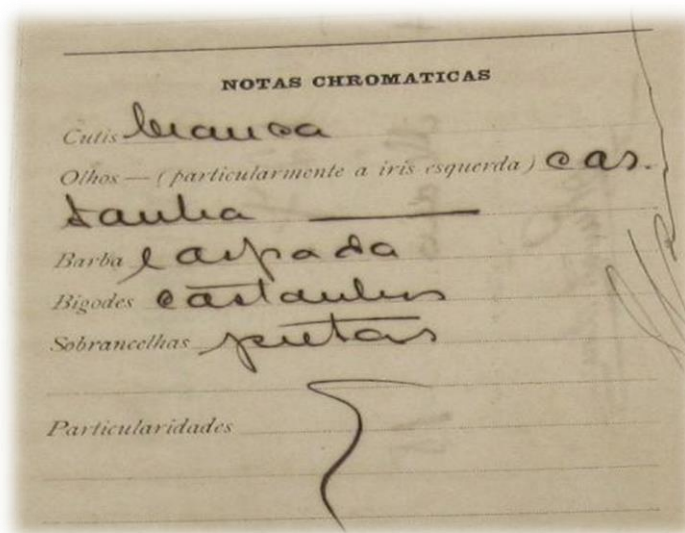 NOTAS CHROMATICAS
Cutis branca
Olhos — (particularmente a iris esquerda) cas.
tanha
Barba raspada
Bigodes castanhos
Sobrancelhas pretas
Particularidades